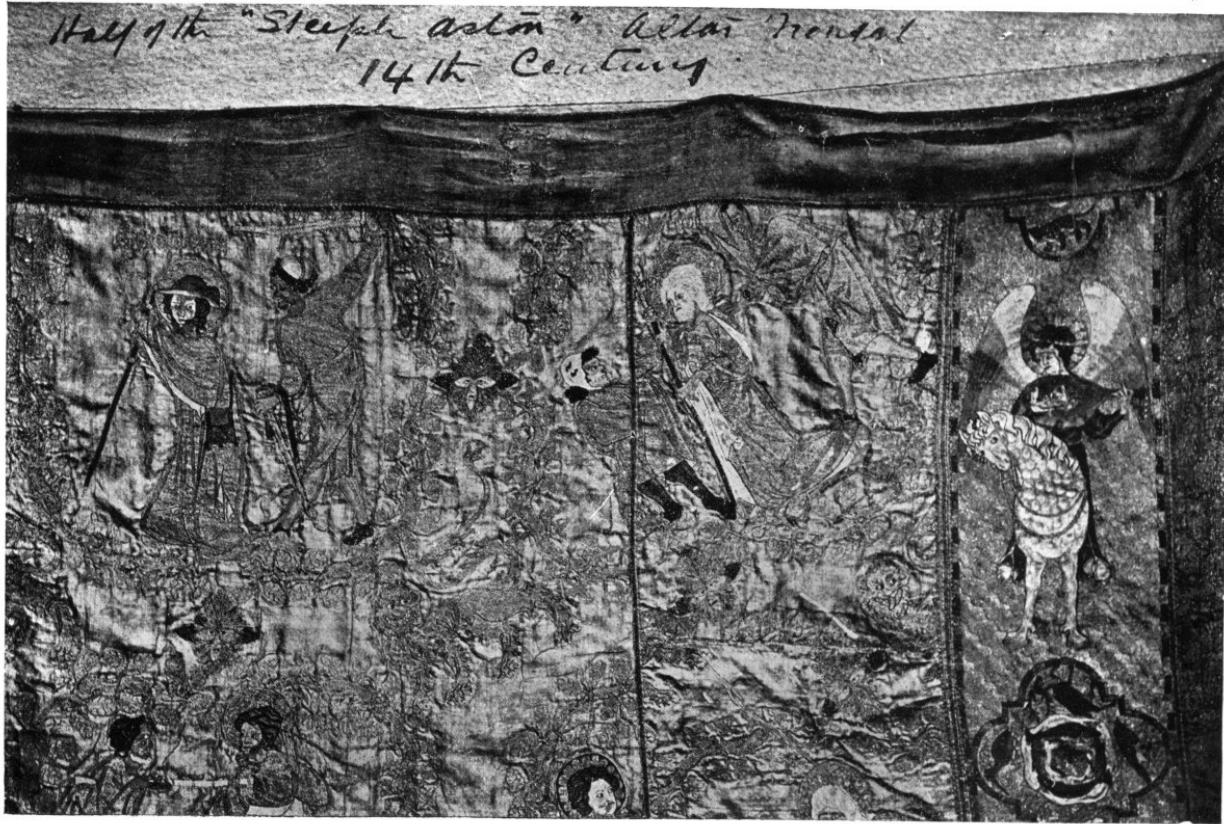 Half of the "Steeple Aston" Altar Frontal
14th Century.